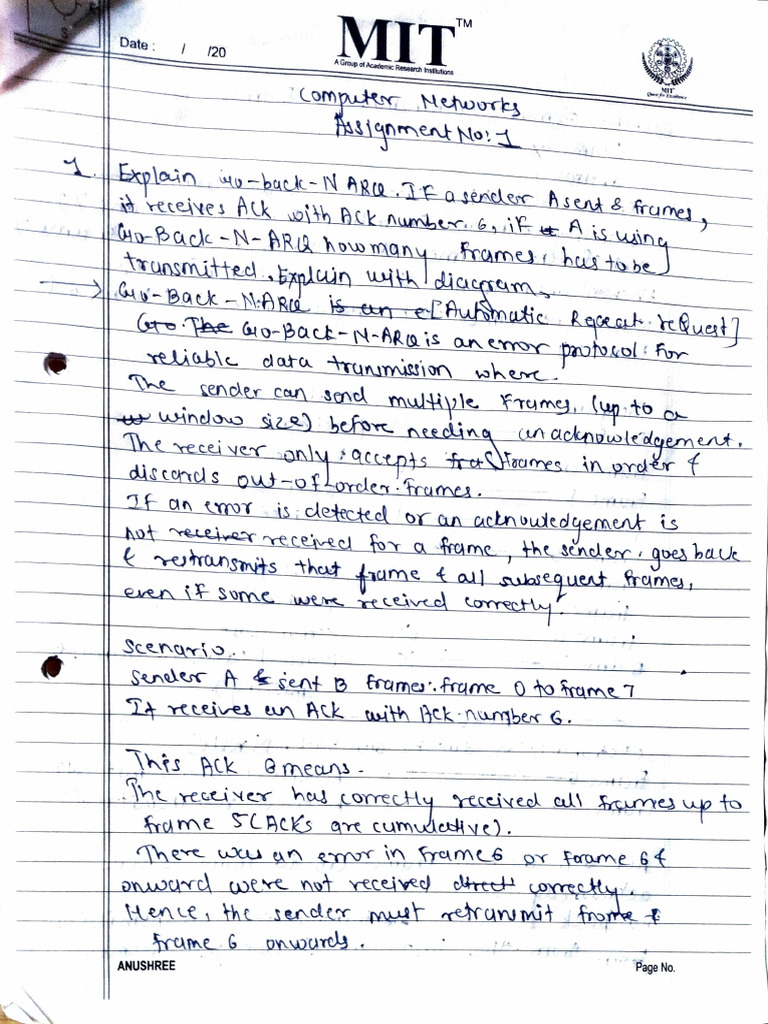 Date : / /20
MIT™
A Group of Academic Research Institutions
MIT
Quest for Excellence
Computer Networks
Assignment No: 1
1. Explain Go-back-N ARQ. If a sender A sent 8 frames,
it receives ACK with ACK number 6, if A is using
Go-Back-N-ARQ how many frames has to be
transmitted. Explain with diagram.
→ Go-Back-N-ARQ is an e [Automatic Repeat reQuest]
Go The Go-Back-N-ARQ is an error protocol for
reliable data transmission where.
The sender can send multiple frames (up to a
w window size) before needing an acknowledgement.
The receiver only accepts fra frames in order &
discards out-of-order frames.
If an error is detected or an acknowledgement is
not receiver received for a frame, the sender goes back
& restransmits that frame & all subsequent frames,
even if some were received correctly.
Scenario..
Sender A & sent 8 frames: frame 0 to frame 7
It receives an ACK with Ack number 6.
This ACK 6 means.
The receiver has correctly received all frames up to
frame 5 (ACKs are cumulative).
There was an error in frame 6 or frame 6 &
onward were not received direct correctly.
Hence, the sender must retransmit frome &
frame 6 onwards.
ANUSHREE
Page No.